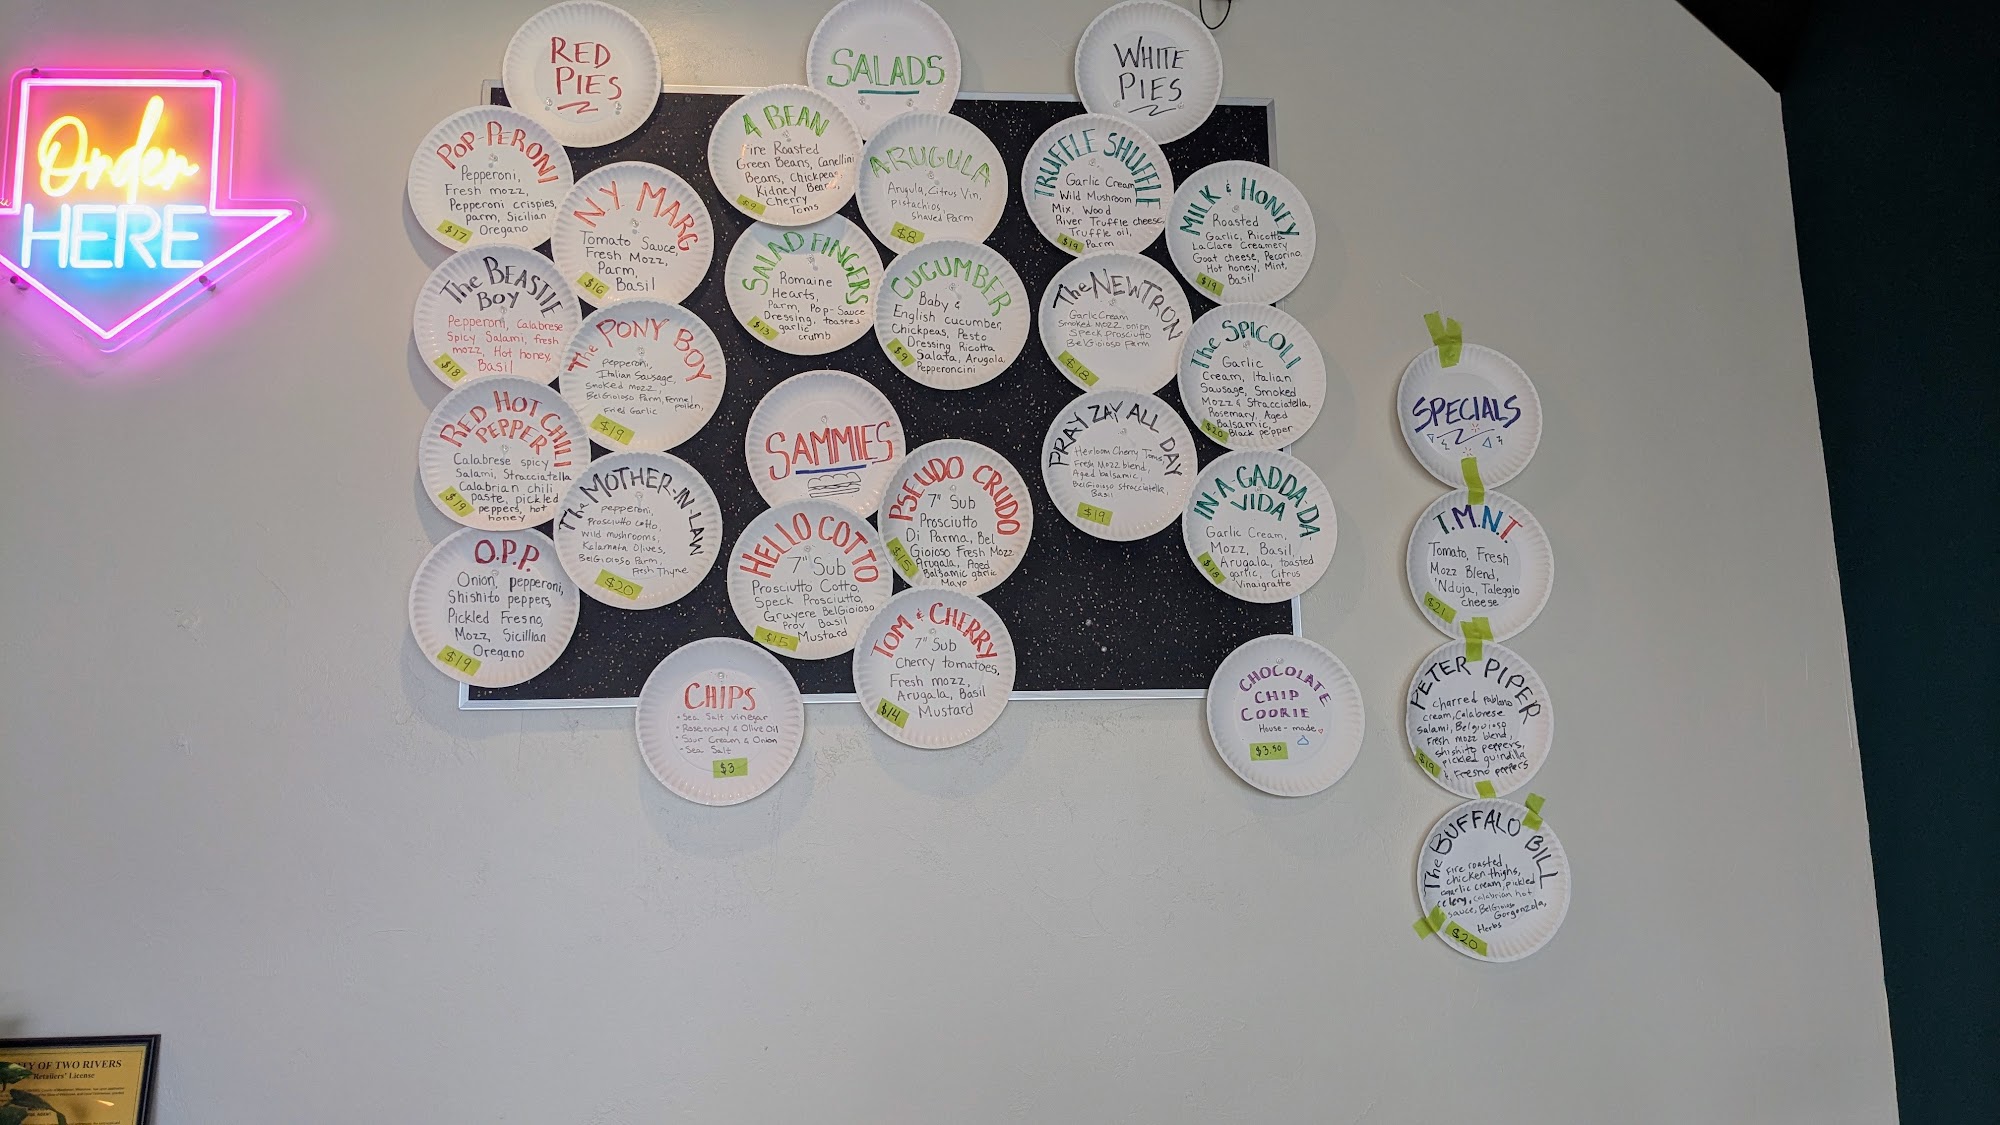 Order
HERE
RED
PIES
POP-PERONI
Pepperoni,
Fresh mozz,
Pepperoni crispies,
parm, Sicilian
Oregano
$17
N.Y MARG
Tomato Sauce,
Fresh Mozz,
Parm,
Basil
$16
The BEASTIE
BOY
Pepperoni, Calabrese
Spicy Salami, fresh
mozz, Hot honey,
Basil
$18
The PONY BOY
pepperoni,
Italian Sausage,
smoked mozz,
BelGioioso Parm, Fennel
pollen,
Fried Garlic
$19
RED HOT CHILI
PEPPER
Calabrese spicy
Salami, Stracciatella
Calabrian chili
paste, pickled
peppers, hot
honey
$19
The MOTHER-IN-LAW
pepperoni,
Prosciutto cotto,
wild mushrooms,
Kalamata Olives,
BelGioioso Parm,
fresh Thyme
$20
O.P.P.
Onion, pepperoni,
Shishito peppers,
Pickled Fresno,
Mozz, Sicillian
Oregano
$19
SALADS
4 BEAN
Fire Roasted
Green Beans, Canellini
Beans, Chickpeas,
Kidney Beans,
Cherry
Toms
$9
ARUGULA
Arugula, Citrus Vin,
pistachios,
shaved Parm
$8
SALAD FINGERS
Romaine
Hearts,
Parm, Pop-Sauce
Dressing, toasted
garlic
crumb
$13
CUCUMBER
Baby &
English cucumber,
Chickpeas, Pesto
Dressing Ricotta
Salata, Arugala,
Pepperoncini
$9
SAMMIES
PSEUDO CRUDO
7" Sub
Prosciutto
Di Parma, Bel
Gioioso Fresh Mozz
Arugala, Aged
Balsamic garlic
Mayo
$15
HELLO COTTO
7" Sub
Prosciutto Cotto,
Speck Prosciutto,
Gruyere BelGioioso
Prov Basil
Mustard
$15
TOM & CHERRY
7" Sub
Cherry tomatoes,
Fresh mozz,
Arugala, Basil
Mustard
$14
CHIPS
• Sea Salt Vinegar
• Rosemary & Olive Oil
• Sour Cream & Onion
- Sea Salt
$3
WHITE
PIES
TRUFFLE SHUFFLE
Garlic Cream
Wild Mushroom
Mix, Wood
River Truffle cheese,
Truffle oil,
Parm
$19
MILK & HONEY
Roasted
Garlic, Ricotta
LaClare Creamery
Goat cheese, Pecorino,
Hot honey, Mint,
Basil
$19
The NEWTRON
Garlic Cream
Smoked mozz onion
Speck prosciutto
BelGioioso Parm
$18
The SPICOLI
Garlic
Cream, Italian
Sausage, Smoked
Mozz & Stracciatella,
Rosemary, Aged
Balsamic,
Black pepper
$20
PRAY ZAY ALL DAY
Heirloom Cherry Toms,
Fresh Mozz blend,
Aged balsamic,
BelGioioso Stracciatella,
Basil
$19
IN A GADDA-DA-
VIDA
Garlic Cream,
Mozz, Basil,
Arugala, toasted
garlic, Citrus
Vinaigratte
$18
CHOCOLATE
CHIP
COOKIE
House-made
$3.50
SPECIALS
T.M.N.T.
Tomato, Fresh
Mozz Blend,
'Nduja, Taleggio
cheese
$21
PETER PIPER
charred Poblano
cream, Calabrese
salami, Belgioioso
Fresh mozz blend,
shishito peppers,
pickled guindilla
& Fresno peppers
$19
The BUFFALO BILL
Fire roasted
chicken thighs,
garlic cream, pickled
celery, Calabrian hot
sauce, BelGioioso
Gorgonzola,
Herbs
$20
TY OF TWO RIVERS
Retailers' License